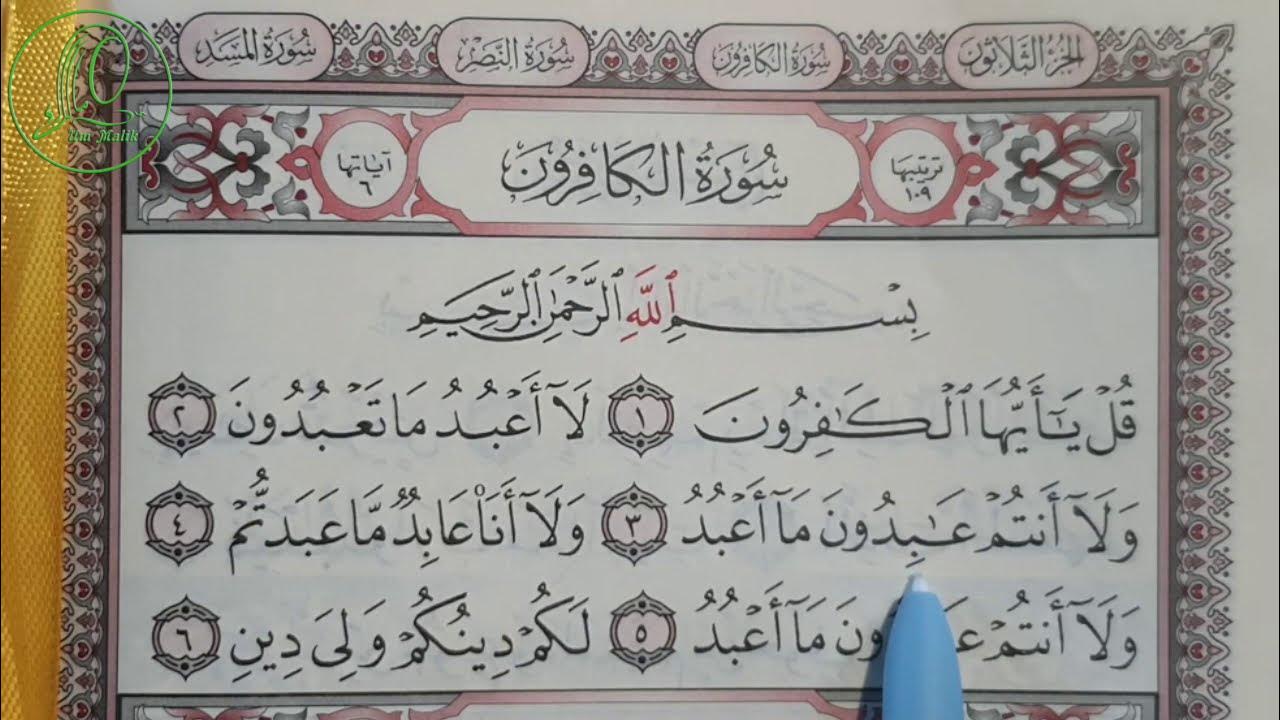 الجزء الثلاثون
سورة الكافرون
سورة النصر
سورة المسد
Um Malik
ترتيبها
١٠٩
سورة الكافرون
آياتها
٦
بِسْمِ ٱللَّهِ ٱلرَّحْمَٰنِ ٱلرَّحِيمِ
قُلْ يَٰٓأَيُّهَا ٱلْكَٰفِرُونَ ١ لَآ أَعْبُدُ مَا تَعْبُدُونَ ٢
وَلَآ أَنتُمْ عَٰبِدُونَ مَآ أَعْبُدُ ٣ وَلَآ أَنَا۠ عَابِدٌ مَّا عَبَدتُّمْ ٤
وَلَآ أَنتُمْ مَآ أَعْبُدُ ٥ لَكُمْ دِينُكُمْ وَلِىَ دِينِ ٦